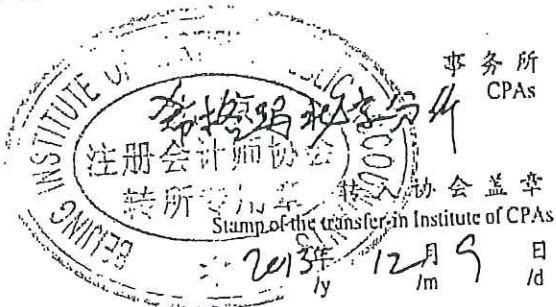 事务所
CPAs
BEIJING INSTITUTE OF
注册会计师协会
转所专用章
转入协会盖章
Stamp of the transfer-in Institute of CPAs
2013年 12月 9日
/y /m /d